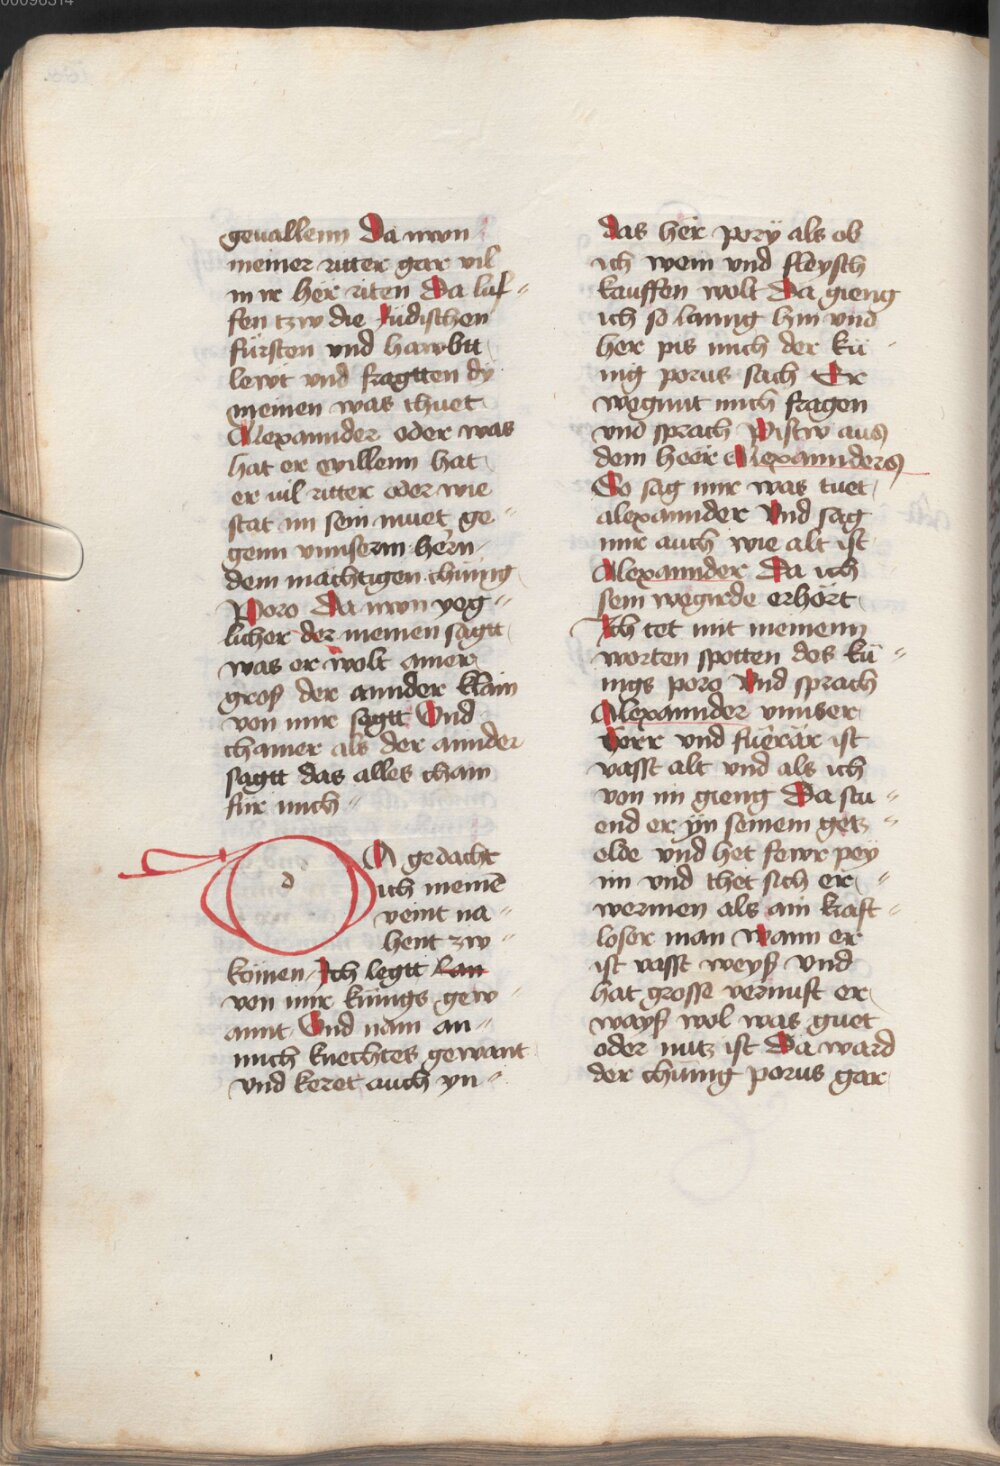 00096314
geuallenn Da nwn
meiner ritter gar vil
in ir her riten Da luf-
fen tzw die Jüdischen
fürsten vnd hawbtt
lewt vnd fragtten dy
meinen was thuet
Alexannder oder was
hat er willenn hat
er vil ritter oder wie
stat im sein muet ge-
genn vnnserm hern
dem mächtigen chünig
Poro Da nwn yeg-
licher der meinen sagtt
was er wolt ainer
groß der annder klain
von mir sagtt Und
chainer als der annder
sagtt das alles cham
für mich
d
A gedacht
ich meine
veint na-
hent zw
kömen Ich legtt lan
von mir künigs gew-
annt Und nam an-
mich knechtes gewant
vnd keret auch yn-
das her pory als ob
ich wein vnd fleysch
kauffen wolt Da gieng
ich so lanng hin vnd
her pis mich der kü-
nig porus sach Er
wegunt mich fragen
vnd sprach Pistw aus
dem heer Alexannders
So sag mir was tuet
alexannder Vnd sag
mir auch wie alt ist
Alexannder Da ich
sein wegirde erhört
Ich tet mit meinenn
worten spotten des kü-
nigs poro Vnd sprach
Alexannder vnnser
herr vnd fuerär ist
vasst alt vnd als ich
von im gieng Da stu-
end er yn seinem getz-
olde vnd het fewr pey
im vnd thet sich er-
wermen als ain kraft-
loser man wann er
ist vasst weyß vnd
hat grosse vernuft er
wayß wol was guet
oder nutz ist Da ward
der chünig porus gar